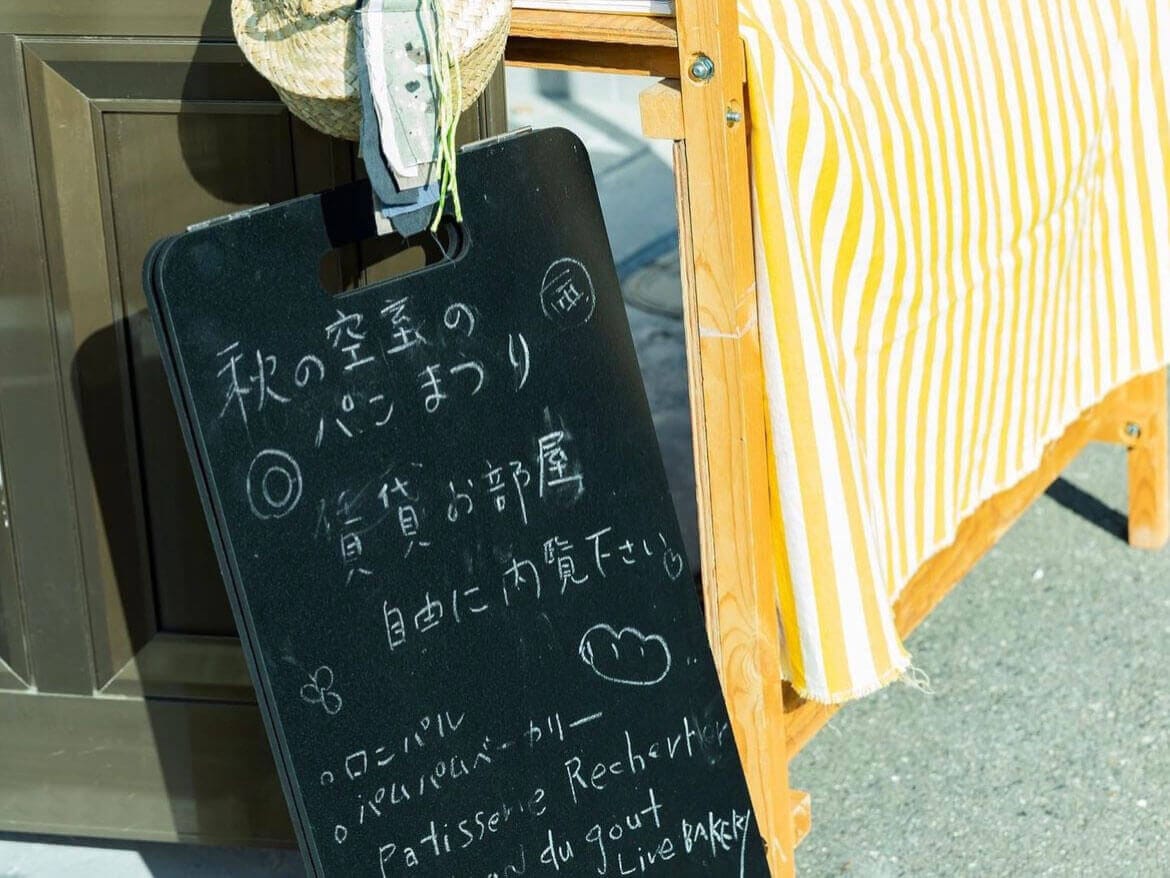 秋の空室の
パンまつり
賃貸お部屋
自由に内覧下さい
ロンパル
パムパムベーカリー
Patisserie Recherher
du gout
Live BAKERY